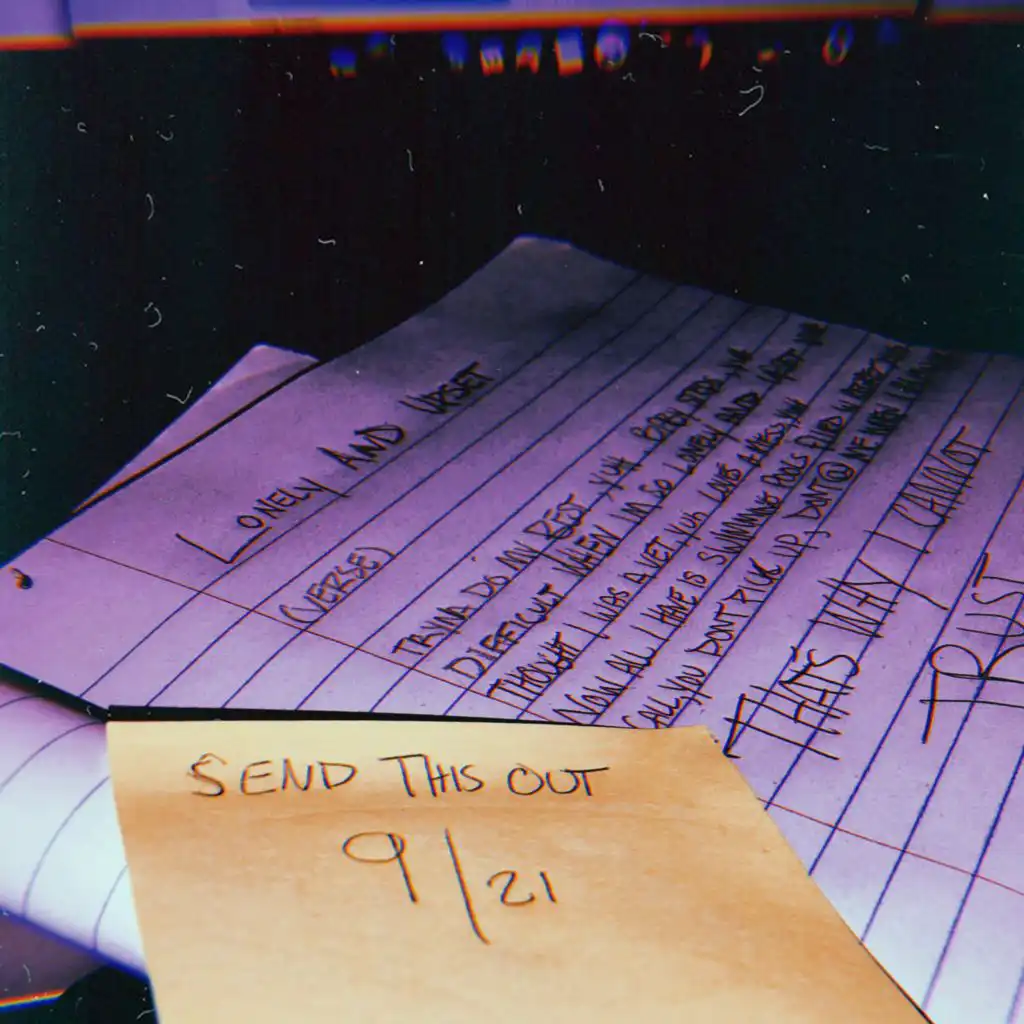 LONELY AND UPSET
(VERSE)
TRYNA DO MY BEST, YUH BABY STOP
DIFFICULT WHEN IM SO LONELY AND UPSET YUH
THOUGHT I WAS A VET YUH LOVES A MESS YUH
NOW ALL I HAVE IS SWIMMING POOLS FILLED W
CALL YOU DONT PICK UP, DONT @ ME WHEN I
THATS WHY I CANNOT
TRUST
SEND THIS OUT
9/21